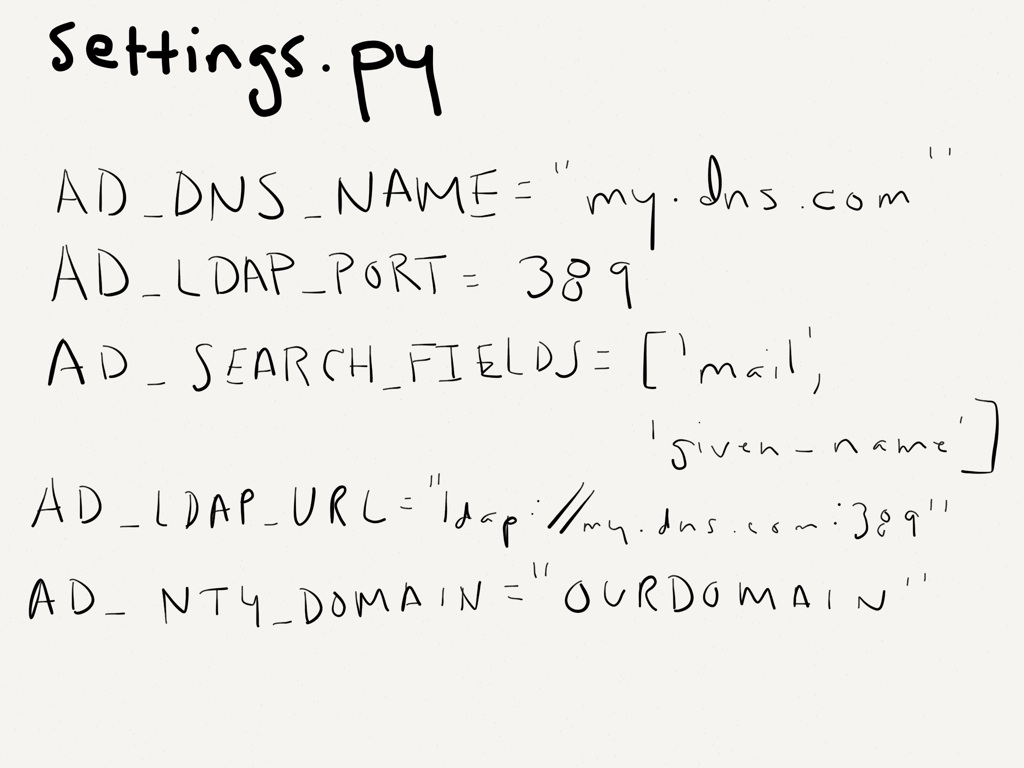 settings.py
AD_DNS_NAME="my.dns.com"
AD_LDAP_PORT= 389
AD_SEARCH_FIELDS=['mail',
'given-name']
AD_LDAP_URL="ldap://my.dns.com:389"
AD_NT4_DOMAIN="OURDOMAIN"